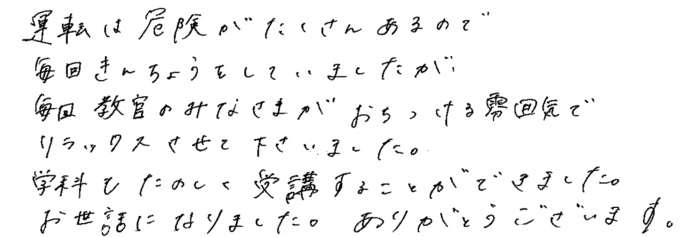 運転は危険がたくさんあるので
毎回きんちょうをしていましたが、
毎回教官のみなさまがおちつける雰囲気で
リラックスさせて下さいました。
学科もたのしく受講することができました。
お世話になりました。ありがとうございます。